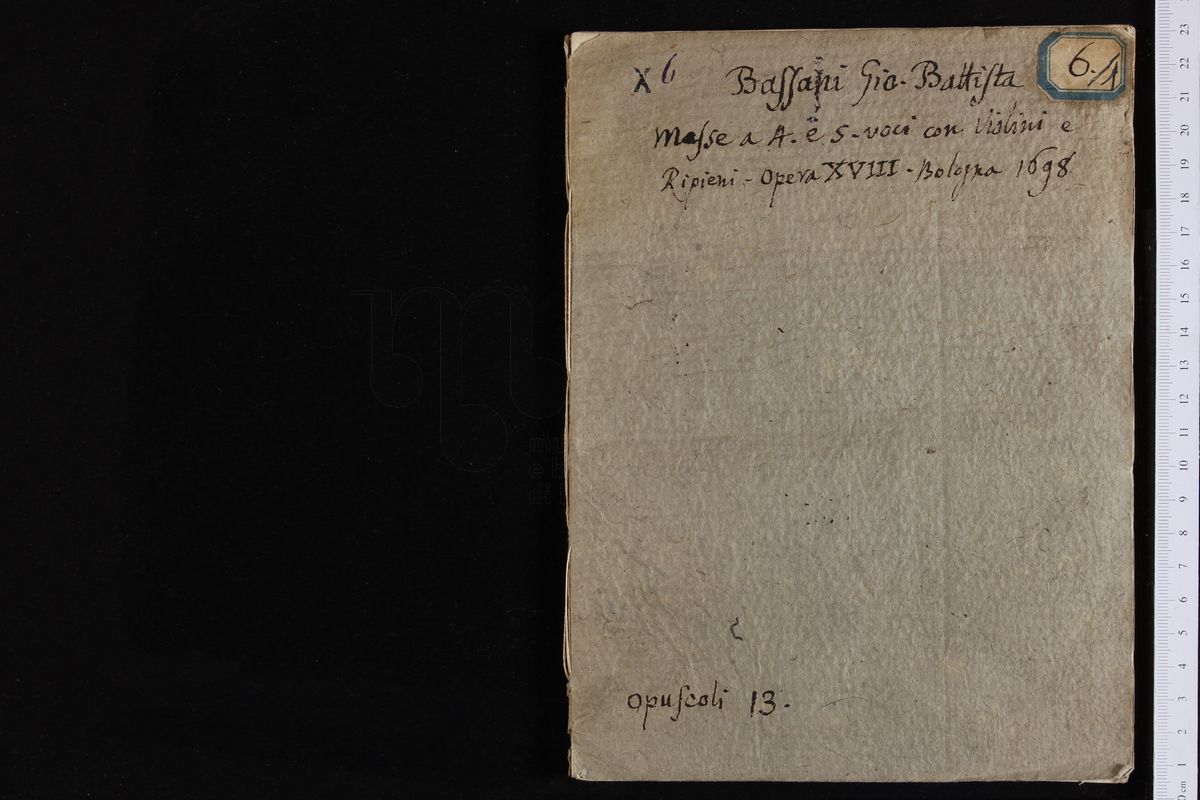 X 6
Bassani Gio. Battista
6./1
Messe a 4. e 5. voci con Violini e
Ripieni - Opera XVIII - Bologna 1698
opuscoli 13.
23
22
21
20
19
18
17
16
15
14
13
12
11
10
9
8
7
6
5
4
3
2
1
0 cm